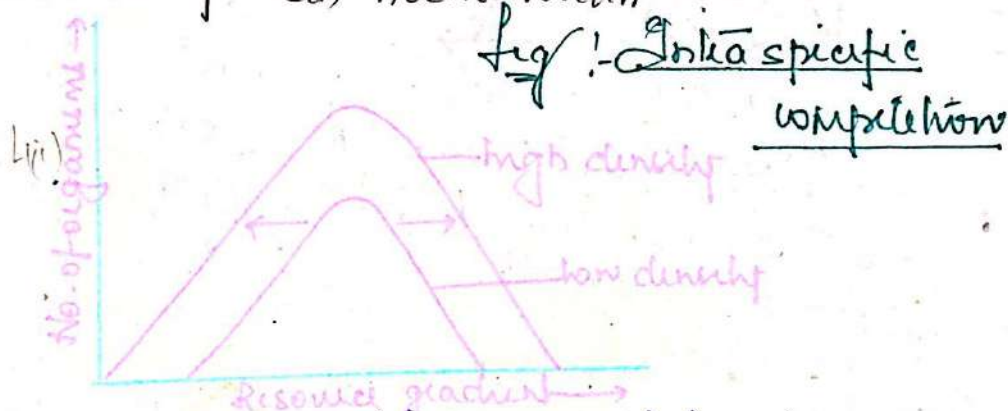 Fig :- Intra specific
competition
(iii)
No. of organisms →
high density
low density
Resource gradient →